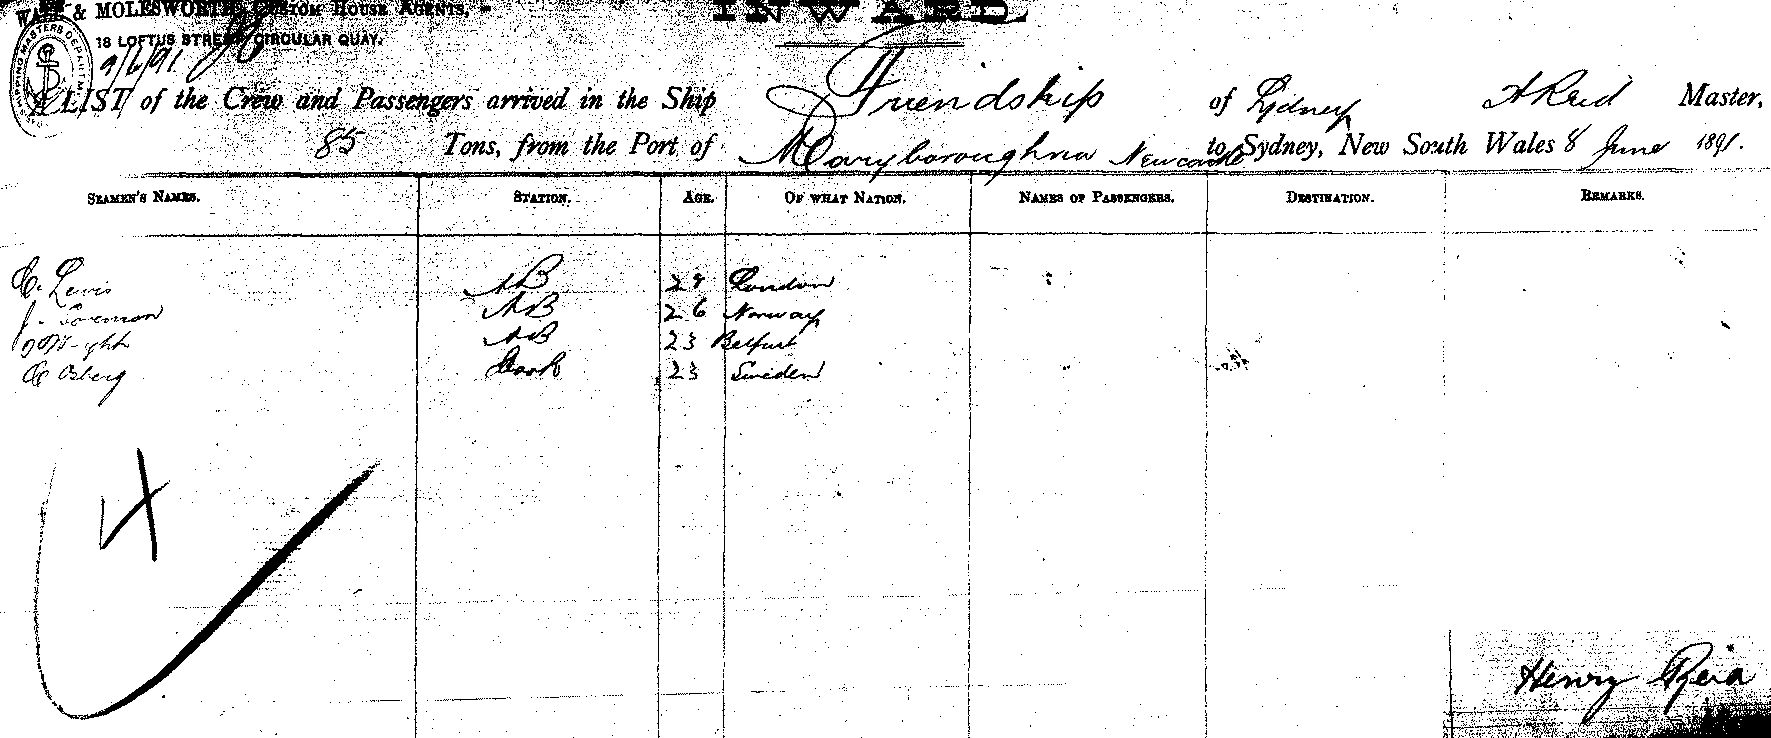 WARE & MOLESWORTH, CUSTOM HOUSE AGENTS,
18 LOFTUS STREET, CIRCULAR QUAY.
INWARD
9/6/91
A LIST of the Crew and Passengers arrived in the Ship Friendship of Sydney H Reid Master,
85 Tons, from the Port of Maryborough via Newcastle to Sydney, New South Wales 8 June 1891.
SEAMEN'S NAMES. STATION. AGE. OF WHAT NATION. NAMES OF PASSENGERS. DESTINATION. REMARKS.
C. Lewis AB 29 London
J. Sorenson AB 26 Norway
AB 23 Belfast
C Osberg Cook 23 Sweden
4
Henry Reid